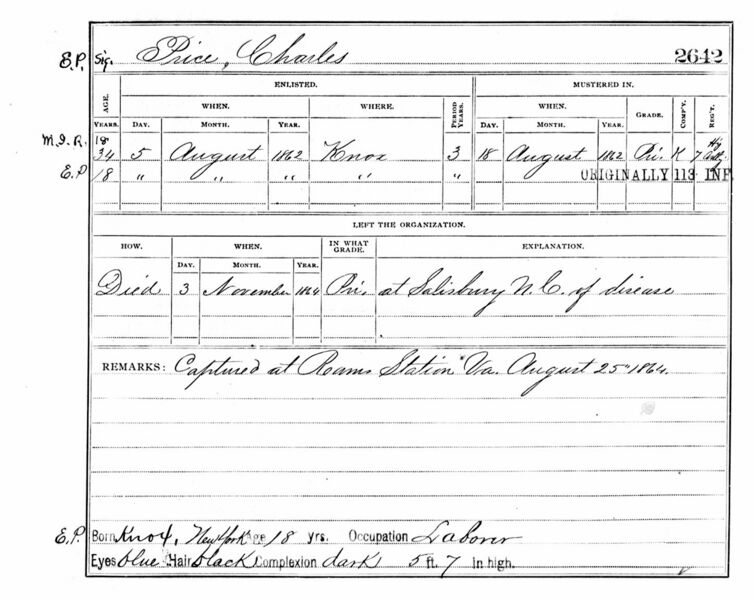 E.P. Sig. Price, Charles 2642
ENLISTED. MUSTERED IN.
AGE. WHEN. WHERE. PERIOD YEARS. WHEN. GRADE. COMP'Y. REG'T.
YEARS. DAY. MONTH. YEAR. DAY. MONTH. YEAR.
M.I.R. 18
34 5 August 1862 Knox 3 18 August 1862 Pri. K 7 Hy Art.
E.P 18 " " " " " ORIGINALLY 113 INF
LEFT THE ORGANIZATION.
HOW. WHEN. IN WHAT GRADE. EXPLANATION.
DAY. MONTH. YEAR.
Died 3 November 1864 Pri. at Salisbury N.C. of disease
REMARKS: Captured at Reams Station Va. August 25" 1864.
E.P. Born Knox, New York Age 18 yrs. Occupation Laborer
Eyes blue Hair black Complexion dark 5 ft. 7 in high.